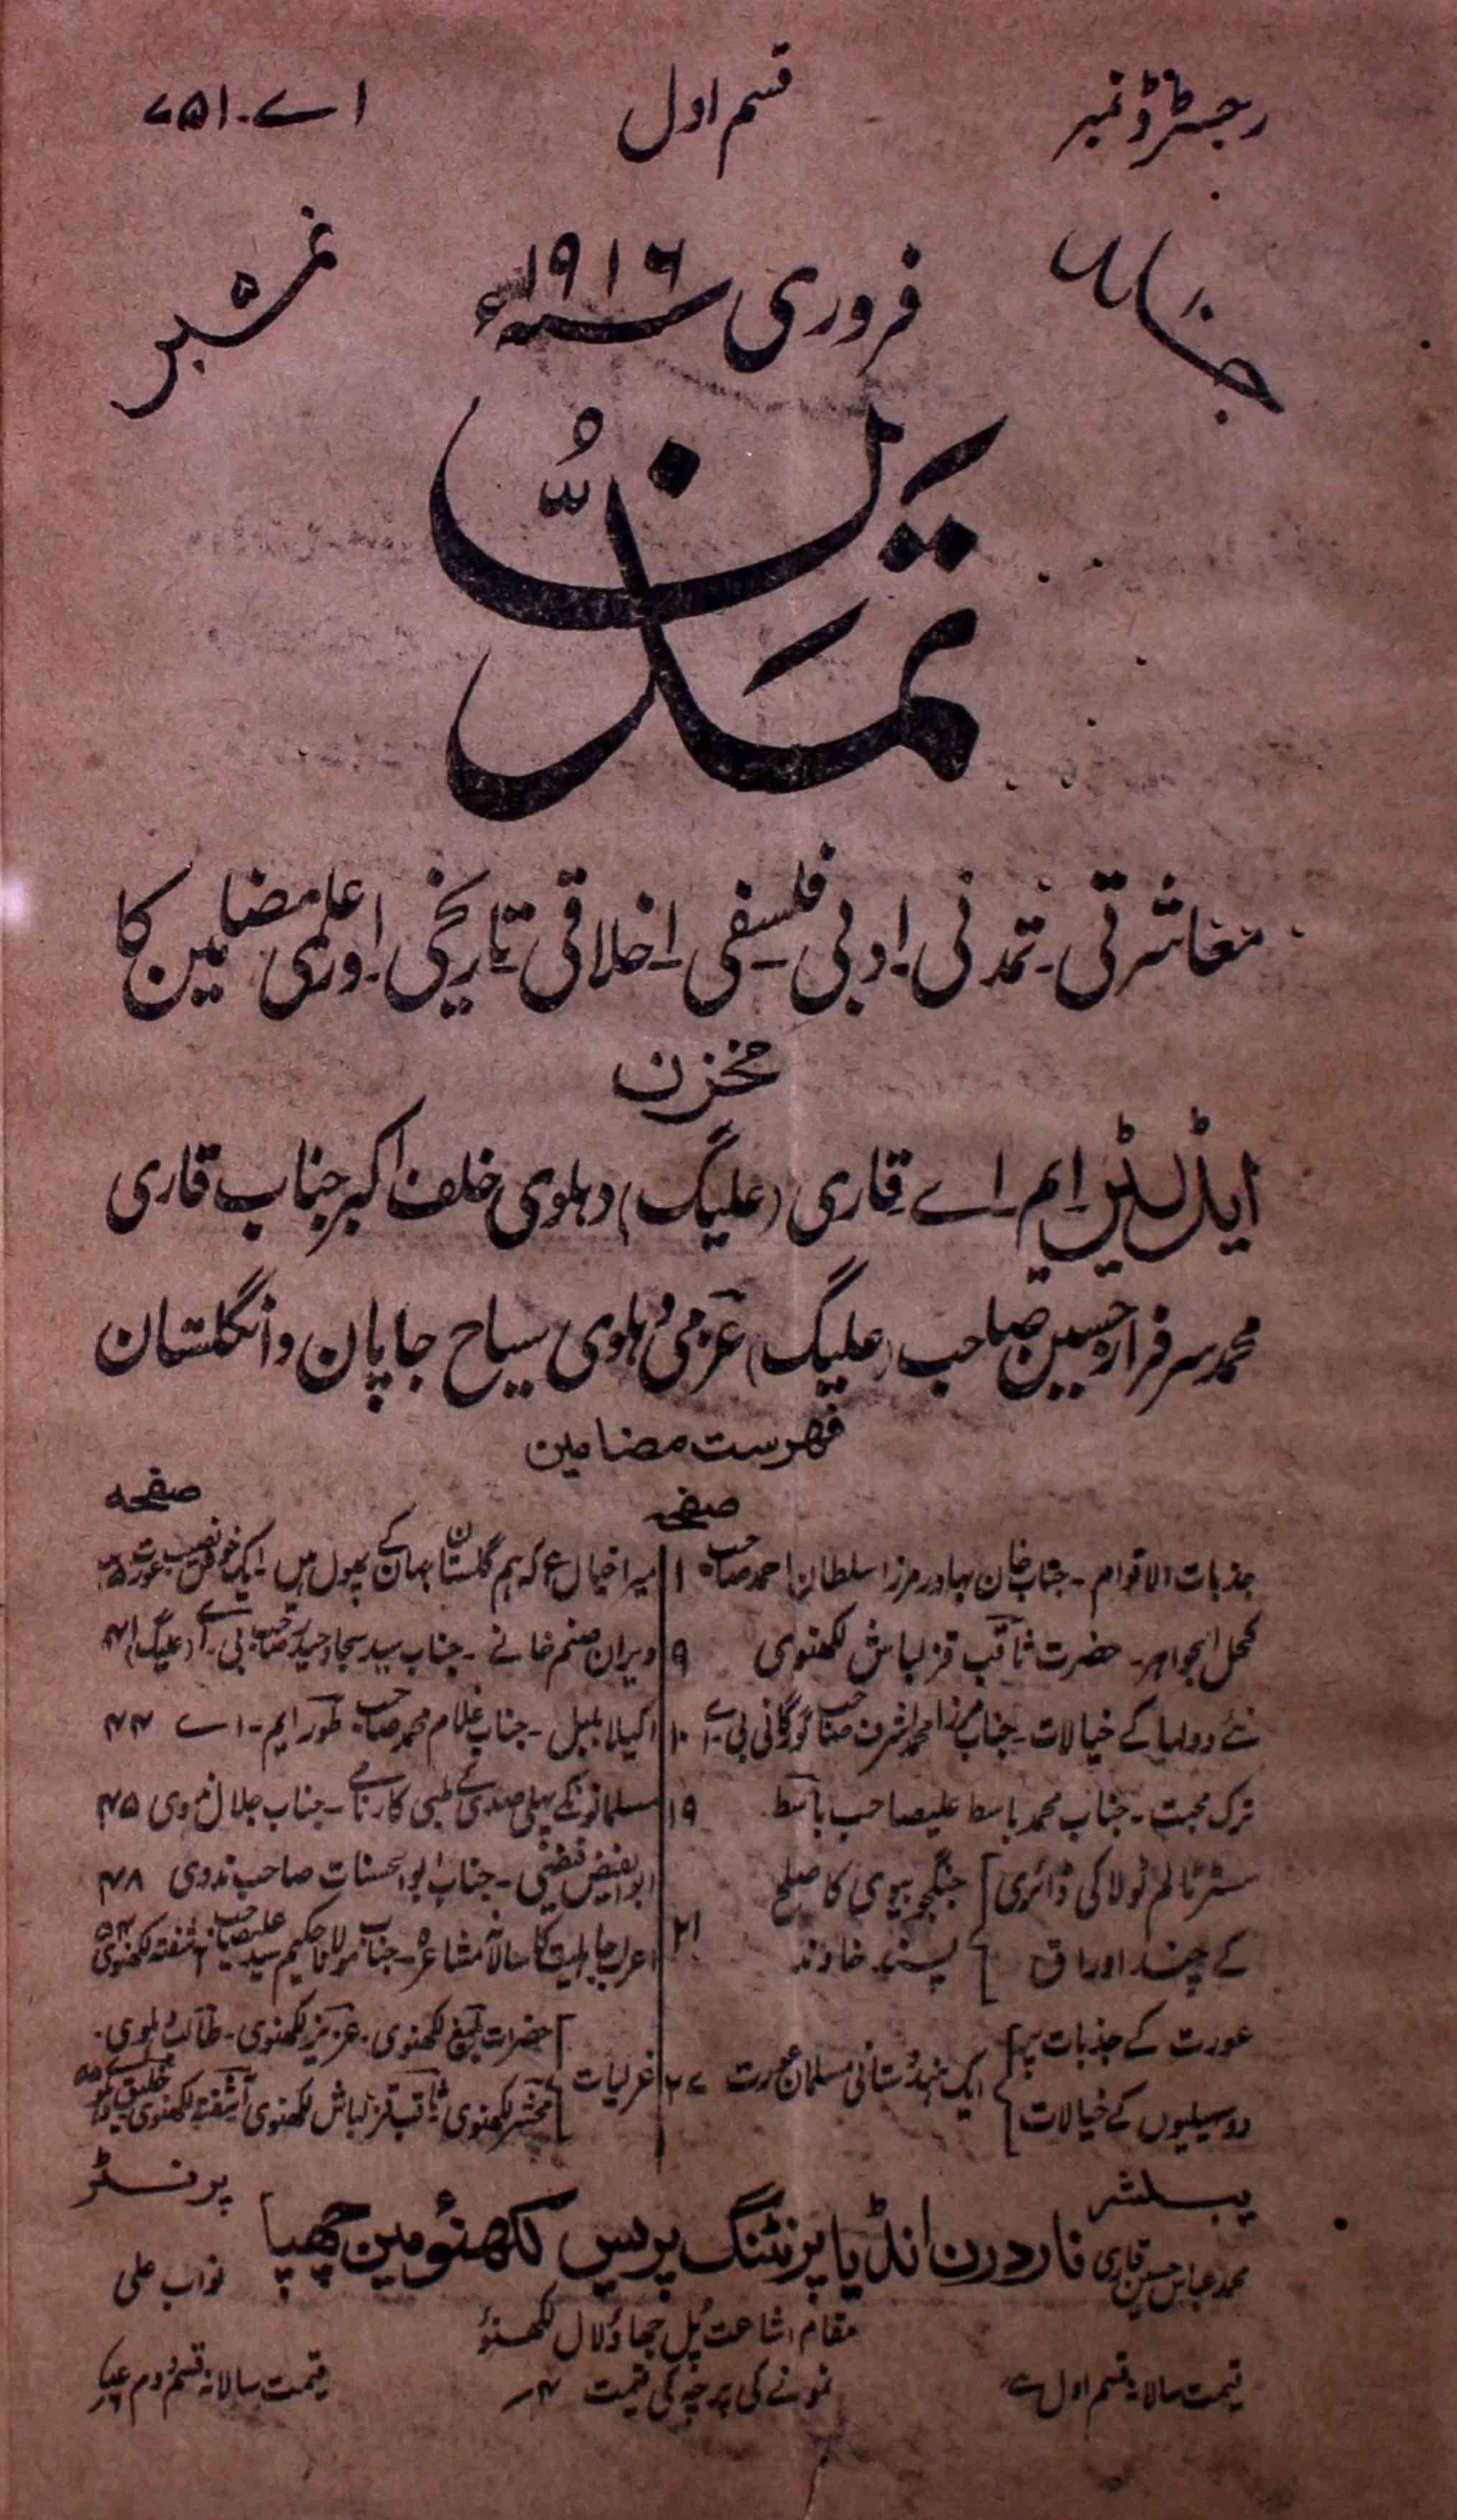 رجسٹرڈ نمبر
قسم اول
اے۔۷۵۱
فروری سنہ ۱۹۱۶ء
نمبر ۵
تمدّن
معاشرتی۔ تمدنی۔ ادبی۔ فلسفی۔ اخلاقی۔ تاریخی۔ اور علمی مضامین کا
مخزن
ایڈیٹر ایم۔ اے۔ قاری (علیگ) دہلوی خلف اکبر جناب قاری
محمد سرفراز حسین صاحب (علیگ) عزمی دہلوی سیاح جاپان و انگلستان
فہرست مضامین
صفحہ
جذبات الاقوام۔ جناب خان بہادر مرزا سلطان احمد صاحب ۱
کحل الجواہر۔ حضرت ثاقب قزلباش لکھنوی ۹
نئے دولہا کے خیالات۔ جناب مرزا محمد اشرف صاحب گورگانی بی۔ اے ۱۰
ترک محبت۔ جناب محمد باسط علیصاحب باسط ۱۹
مسٹر ٹالم ٹولا کی ڈائری جنگجو بیوی کا صلح
کے چند اوراق پسند خاوند ۲۱
عورت کے جذبات پر
ایک ہندوستانی مسلمان عورت ۲۷
دو سہیلیوں کے خیالات
صفحہ
میرا خیال ہے کہ ہم گلستان جہان کے پھول ہیں۔ ایک خوش نصیب عورت
ویران صنم خانے۔ جناب سید سجاد حیدر صاحب بی۔ اے (علیگ) ۴۱
اکیلا بلبل۔ جناب غلام محمد صاحب طور ایم۔ اے ۴۴
مسلمانوں کے پہلی صدی کے طبی کارنامے۔ جناب جلال مروی ۴۵
ابوالفیض فیضی۔ جناب ابوالحسنات صاحب ندوی ۴۸
عرب جاہلیت کا سالانہ مشاعرہ۔ جناب مولانا حکیم سید علیصاحب آشفتہ لکھنوی ۵۴
حضرات بلیغ لکھنوی۔ عزیز لکھنوی۔ طالب دہلوی۔
غزلیات
محشر لکھنوی ثاقب قزلباش لکھنوی آشفتہ لکھنوی خلیق ۵۵
پبلشر
محمد عباس حسین قاری
ماڈرن انڈیا پرنٹنگ پریس لکھنؤ مین چھپا
پرنٹر
نواب علی
مقام اشاعت پل جھاؤلال لکھنؤ
قیمت سالانہ قسم اول
نمونے کی پرچہ کی قیمت ۴؍
قیمت سالانہ قسم دوم